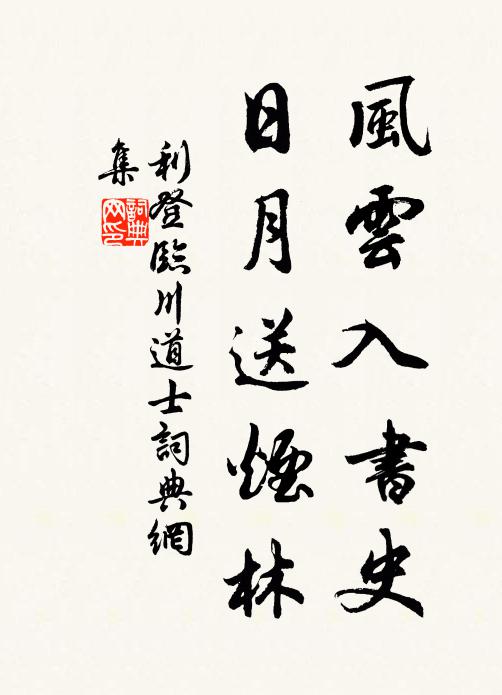 風雲入書史
日月送煙林
利登臨川道士詞典網
集
詞典
网印